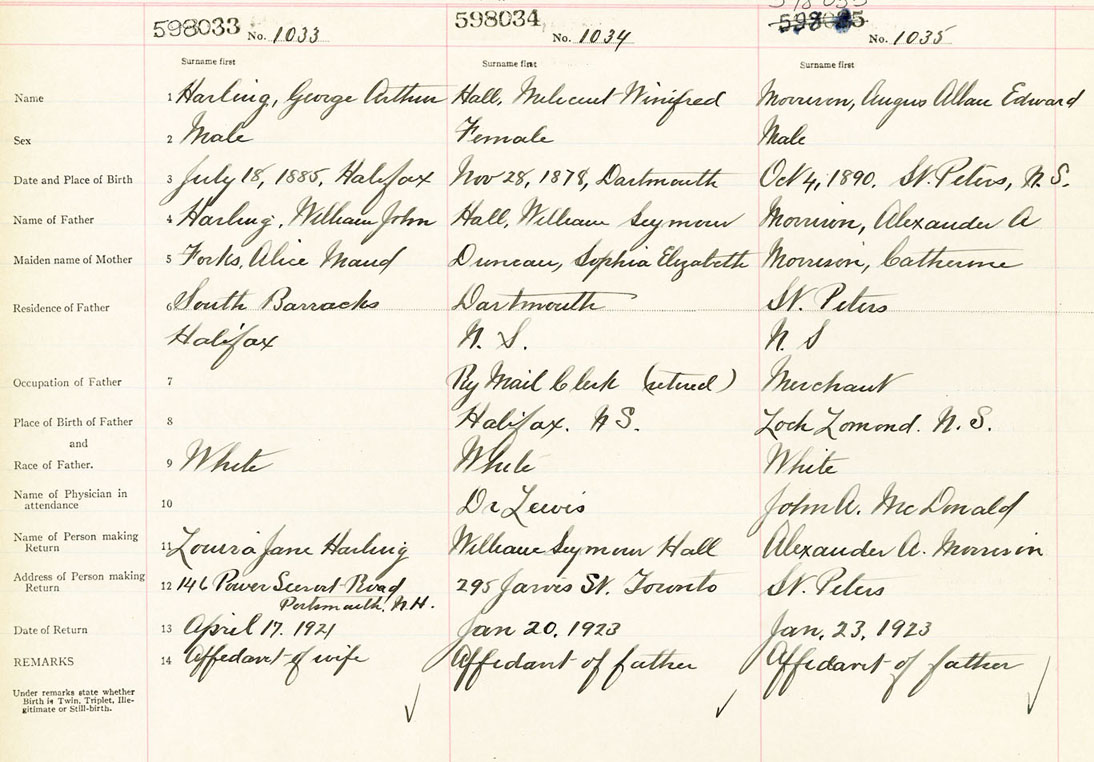 598033 No. 1033 598034 No. 1034 598035 No. 1035
Surname first Surname first Surname first
Name 1 Harling, George Arthur Hall, Melicent Winifred Morrison, Angus Allan Edward
Sex 2 Male Female Male
Date and Place of Birth 3 July 18, 1885, Halifax Nov 28, 1878, Dartmouth Oct 4, 1890. St. Peters, N.S.
Name of Father 4 Harling, William John Hall, William Seymour Morrison, Alexander A
Maiden name of Mother 5 Forks, Alice Maud Duncan, Sophia Elizabeth Morrison, Catherine
Residence of Father 6 South Barracks Dartmouth St. Peters
Halifax N. S. N. S
Occupation of Father 7 Ry Mail Clerk (retired) Merchant
Place of Birth of Father 8 Halifax. N S. Loch Lomond. N. S.
and
Race of Father. 9 White White White
Name of Physician in
attendance 10 Dr Lewis John A. McDonald
Name of Person making
Return 11 Louisa Jane Harling William Seymour Hall Alexander A. Morrison
Address of Person making
Return 12 146 Power Road 295 Jarvis St. Toronto St. Peters
Portsmouth, N.H.
Date of Return 13 April 17. 1921 Jan 20, 1923 Jan, 23, 1923
REMARKS 14 Affedavit of wife Affedavit of father Affedavit of father
Under remarks state whether
Birth is Twin, Triplet, Ille-
gitimate or Still-birth.